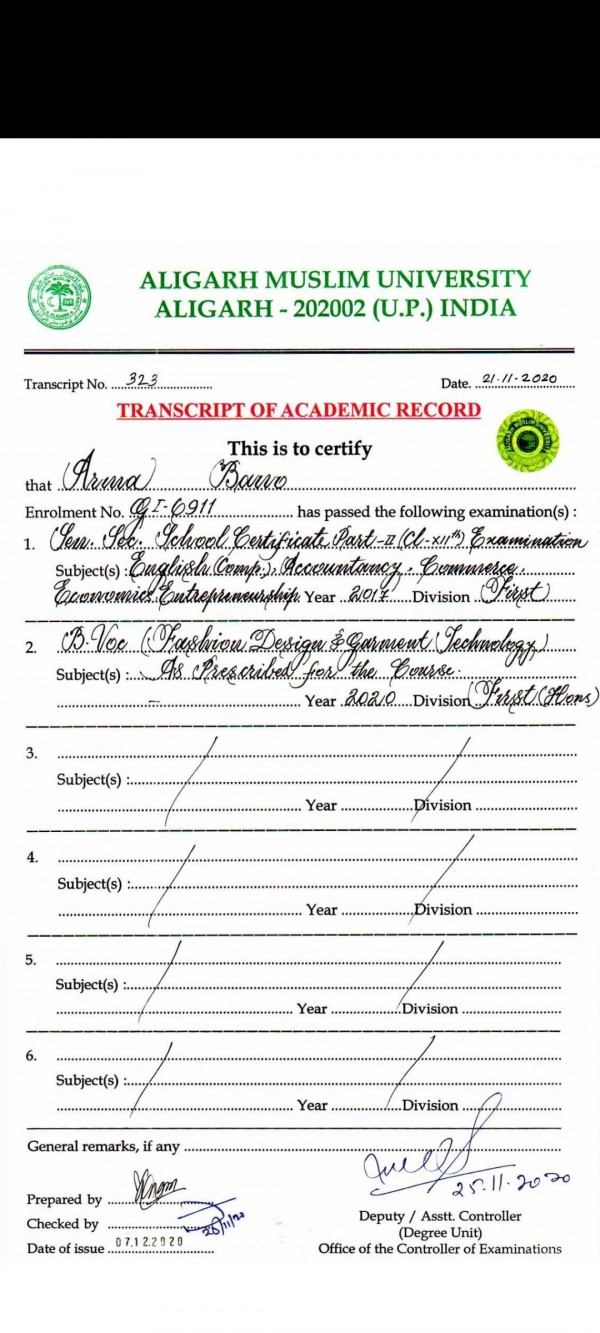 ALIGARH MUSLIM UNIVERSITY
ALIGARH - 202002 (U.P.) INDIA
Transcript No. 323 Date. 21.11.2020
TRANSCRIPT OF ACADEMIC RECORD
This is to certify
that Arma Bano
Enrolment No. GI-6911 has passed the following examination(s) :
1. Senr. Sec. School Certificate Part-II (Cl-XIIth) Examination
Subject(s) : English (Comp.), Accountancy, Commerce,
Economics, Entrepreneurship. Year 2017 Division First
2. B.Voc (Fashion Design & Garment Technology)
Subject(s) : As Prescribed for the Course.
- Year 2020 Division First (Hons)
3.
Subject(s) :
Year Division
4.
Subject(s) :
Year Division
5.
Subject(s) :
Year Division
6.
Subject(s) :
Year Division
General remarks, if any
25.11.2020
Prepared by
Checked by
Date of issue 07.12.2020
Deputy / Asstt. Controller
(Degree Unit)
Office of the Controller of Examinations